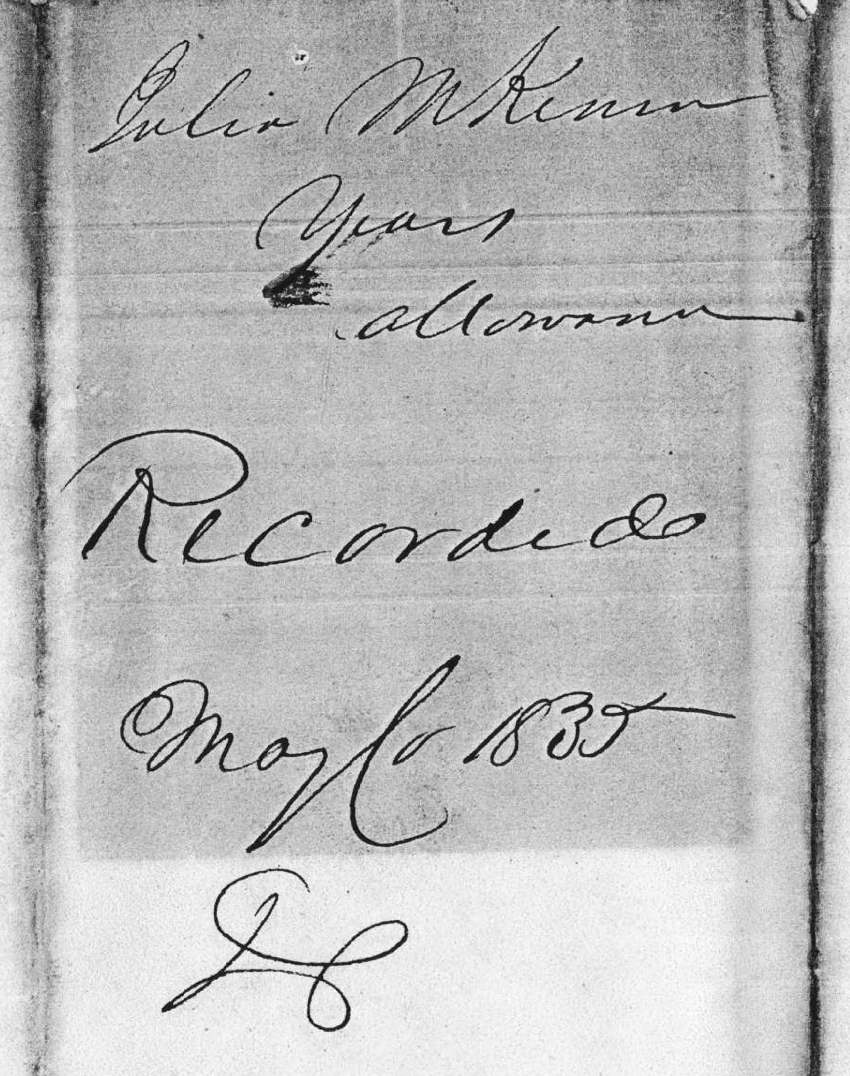 Julia McKinne
Years
allowance
Recorded
May Co 1835